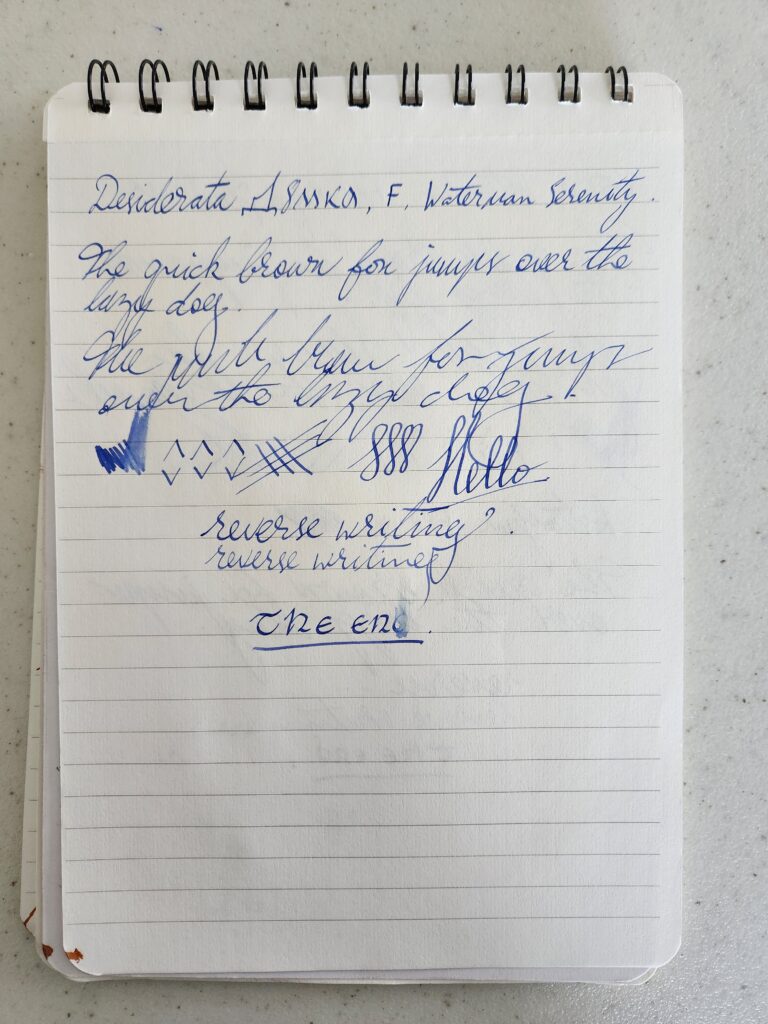 Desiderata F. Waterman Serenity.
The quick brown fox jumps over the
lazy dog.
The quick brown fox jumps
over the lazy dog.
Hello
reverse writing.
reverse writing
The end.